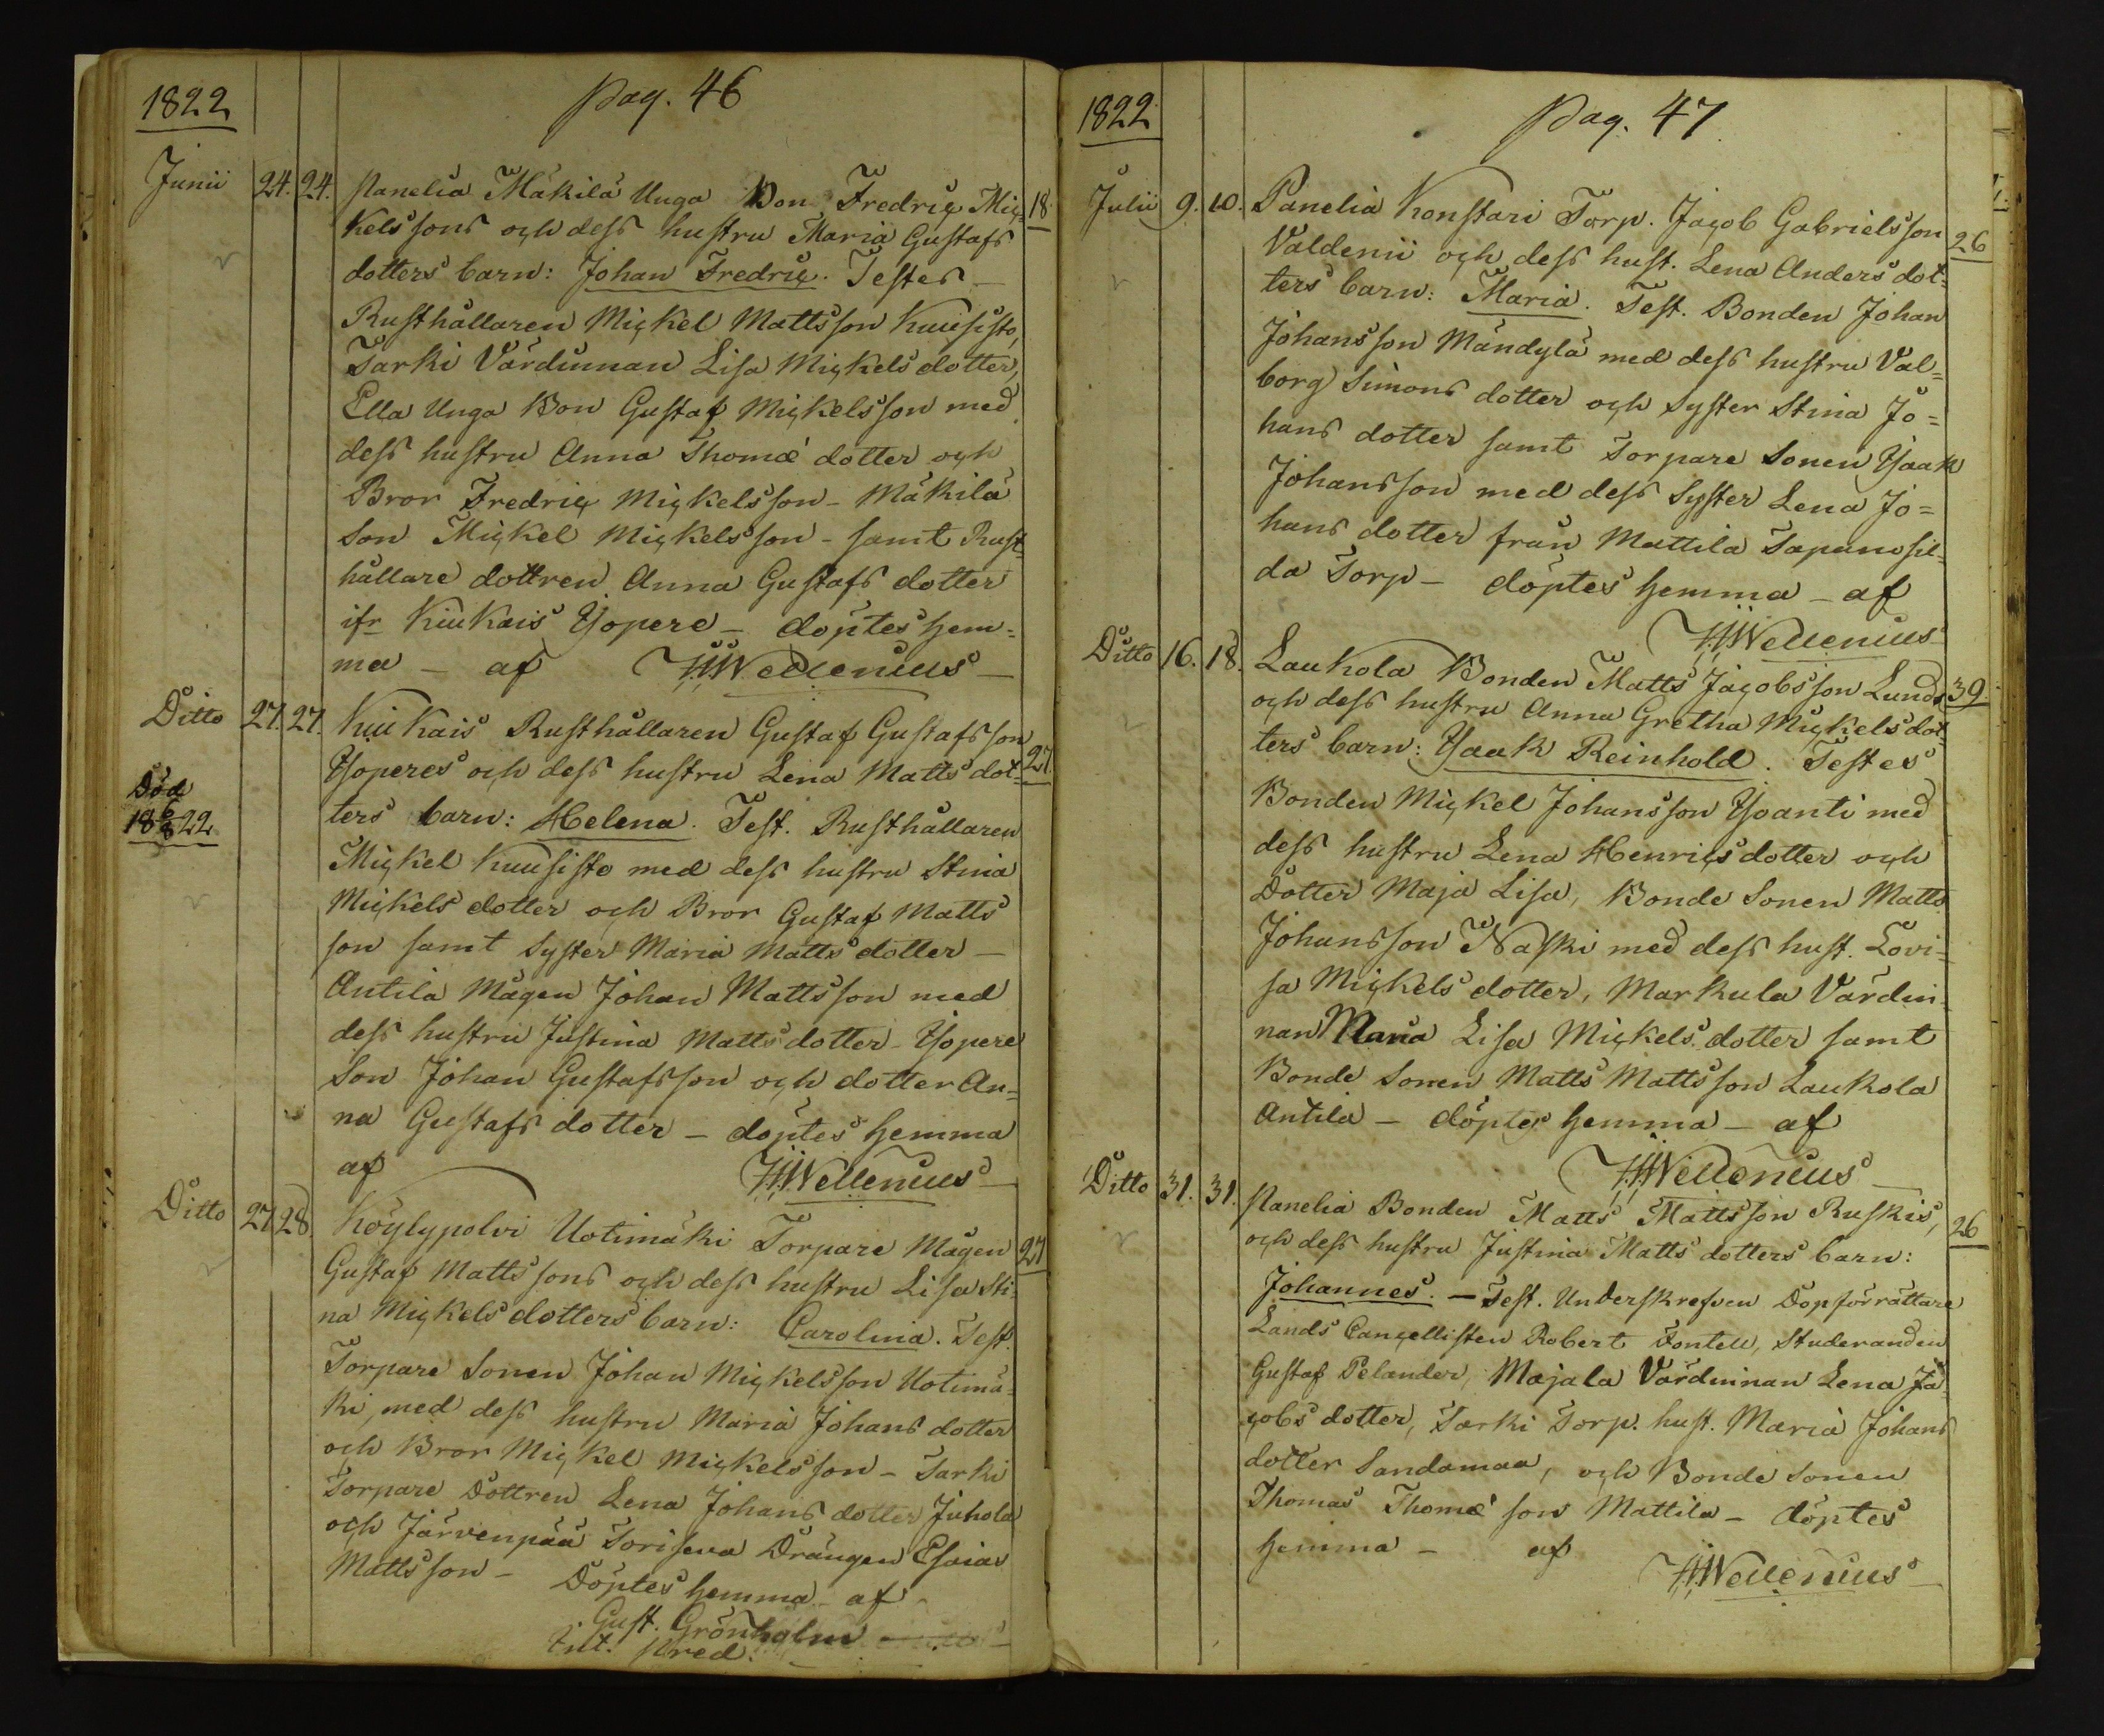 1822
pag. 46
Junii 24. 24. Panelia Mäkilä Unga Bon Fredric Mic= 18
kelssons och dess hustru Maria Gustafs
dotters barn: Johan Fredric. Testes –
Rusthållaren Mickel Mattsson Kuusisto,
Tarki Värdinnan Lisa Mickels dotter,
Ella Unga Bon Gustaf Mickelsson med
dess hustru Anna Thomæ dotter och
Bror Fredric Mickelsson – Mäkilä
Son Mickel Mickelsson – samt Rust=
hållare dottren Anna Gustafs dotter
ifr Kiukais Yopere – döptes hem=
ma – af HWellenius –
Ditto 27. 27. Kiukais Rusthållaren Gustaf Gustafsson
Yoperes och dess hustru Lena Matts dot= 27.
Död
18 6/8 22
ters barn: Helena. Test. Rusthållaren
Mickel Kuusisto med dess hustru Stina
Mickels dotter och Bror Gustaf Matts
son samt Syster Maria Matts dotter –
Antila Mågen Johan Mattsson med
dess hustru Justina Matts dotter – Yopere
Son Johan Gustafsson och dotter An=
na Gustafs dotter – döptes hemma
af HWellenius –
Ditto 27 28 Köylypolvi Uotimäki Torpare Mågen 27
Gustaf Mattssons och dess hustru Lisa Sti=
na Mickels dotters barn: Carolina. Test.
Torpare Sonen Johan Mickelsson Uotimä=
ki, med dess hustru Maria Johans dotter
och Bror Mickel Mickelsson – Tarki
Torpare Dottren Lena Johans dotter Juhola
och Järvenpää Sorisewa Drängen Esaias
Mattsson – Döptes hemma af
Gust. Grönholm
Pred.
1822
pag. 47
Julii 9. 10. Panelia Konstari Torp. Jacob Gabrielsson 26
Valdenii och dess hust. Lena Anders dot=
ters barn: Maria. Test. Bonden Johan
Johansson Mändylä med dess hustru Val=
borg Simons dotter och Syster Stina Jo=
hans dotter samt Torpare Sonen Ysaak
Johansson med dess Syster Lena Jo=
hans dotter från Mattila Tapanosil=
da Torp – döptes hemma – af
HWellenius
Ditto 16. 18. Laukola Bonden Matts Jacobsson Lunds 39.
och dess hustru Anna Gretha Mickels dot=
ters barn: Ysaak Reinhold. Testes
Bonden Mickel Johansson Yoanti med
dess hustru Lena Henrics dotter och
Dotter Maja Lisa, Bonde Sonen Matts
Johansson Naski med dess hust. Lovi=
sa Mickels dotter, Markula Värdin=
nan Maria Lisa Mickels dotter samt
Bonde Sonen Matts Mattsson Laukola
Antila – döptes hemma – af
HWellenius –
Ditto 31. 31. Panelia Bonden Matts Mattsson Ruskis, 26
och dess hustru Justina Matts dotters barn:
Johannes. – Test. Underskrefven Dopförrättare
Lands Cancellisten Robert Fontell, Studeranden
Gustaf Pelander, Majala Värdinnan Lena Ja=
cobs dotter, Tarki Torp. hust. Maria Johans
dotter Sandamaa, och Bonde Sonen
Thomas Thomæ son Mattila – döptes
hemma – af
HWellenius –